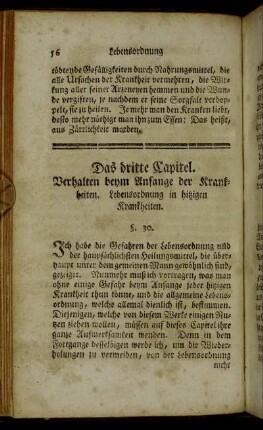 56 Lebensordnung
tödtende Gefälligkeiten durch Nahrungsmittel, die
alle Ursachen der Krankheit vermehren, die Wir-
kung aller seiner Arzeneyen hemmen und die Wun-
de vergiften, je nachdem er seine Sorgfalt verdop-
pelt, sie zu heilen. Je mehr man den Kranken liebt,
desto mehr nöthigt man ihn zum Essen: Das heißt,
aus Zärtlichkeit morden.
Das dritte Capitel.
Verhalten beym Anfange der Krank-
heiten. Lebensordnung in hitzigen
Krankheiten.
§. 30.
Ich habe die Gefahren der Lebensordnung und
der hauptsächlichsten Heilungsmittel, die über-
haupt unter dem gemeinen Mann gewöhnlich sind
gezeiget. Nunmehr muß ich vortragen, was man
ohne einige Gefahr beym Anfange jeder hitzigen
Krankheit thun könne, und die allgemeine Lebens-
ordnung, welche allemal dienlich ist, bestimmen.
Diejenigen, welche von diesem Werke einigen Nu-
tzen ziehen wollen, müssen auf dieses Capitel ihre
ganze Aufmerksamkeit wenden. Denn in dem
Fortgange desselbigen werde ich, um die Wieder-
holungen zu vermeiden, von der Lebensordnung
nicht